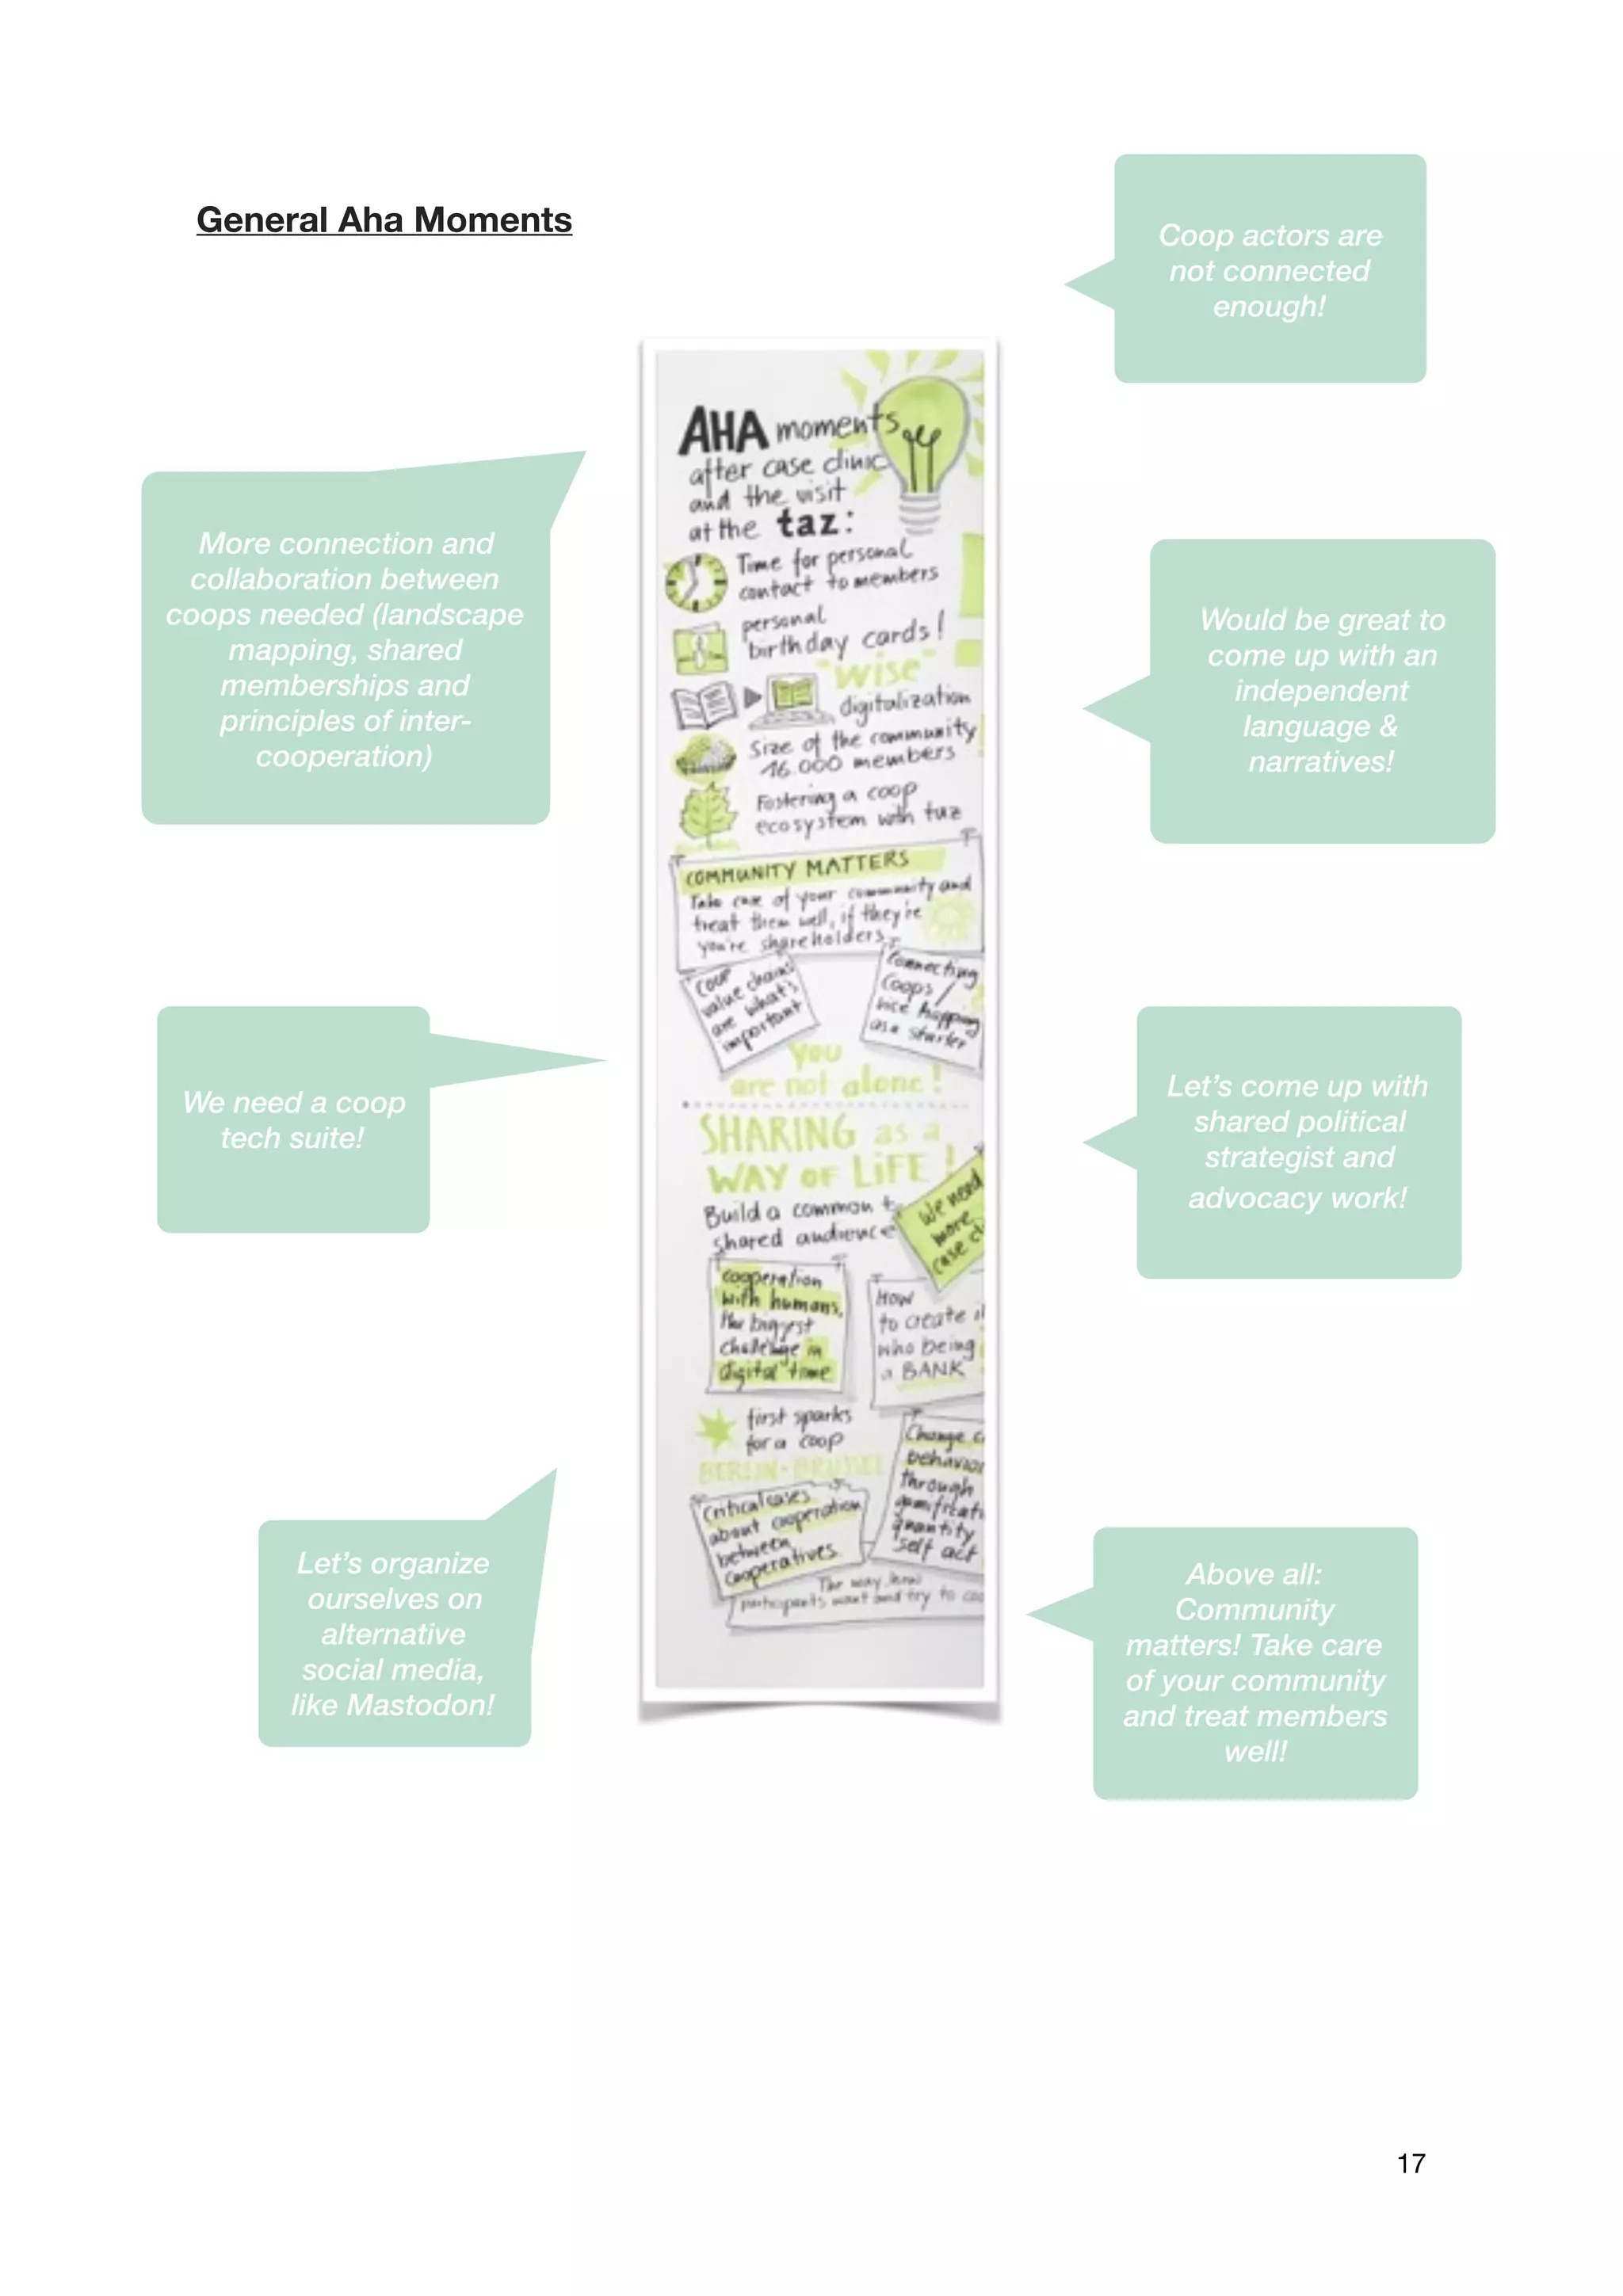 General Aha Moments
Coop actors are
not connected
enough!
More connection and
collaboration between
coops needed (landscape
mapping, shared
memberships and
principles of inter-
cooperation)
Would be great to
come up with an
independent
language &
narratives!
We need a coop
tech suite!
Let's come up with
shared political
strategist and
advocacy work!
Let's organize
ourselves on
alternative
social media,
like Mastodon!
Above all:
Community
matters! Take care
of your community
and treat members
well!
AHA moments
after case clinic
and the visit
at the taz:
Time for personal
contact to members
personal
birthday cards!
"wise"
digitalization
Size of the community
16.000 members
Fostering a coop
ecosystem with taz
COMMUNITY MATTERS
Take care of your community and
treat them well, if they're
you're shareholders
coop
value chains
are what's
important
Connecting
Coops/
nice happing
as a starter
you
are not alone!
SHARING as a
WAY OF LiFE!
Build a common
shared audience
We need
more
case
cooperation
with humans,
the biggest
challenge in
digital time
How
to create
who being
a BANK
first sparks
for a coop
BERLIN - BRUSSEL
Change
through
quantity
self act
Critical cases
about cooperation
between
cooperatives
The way how
participants want and try to
17